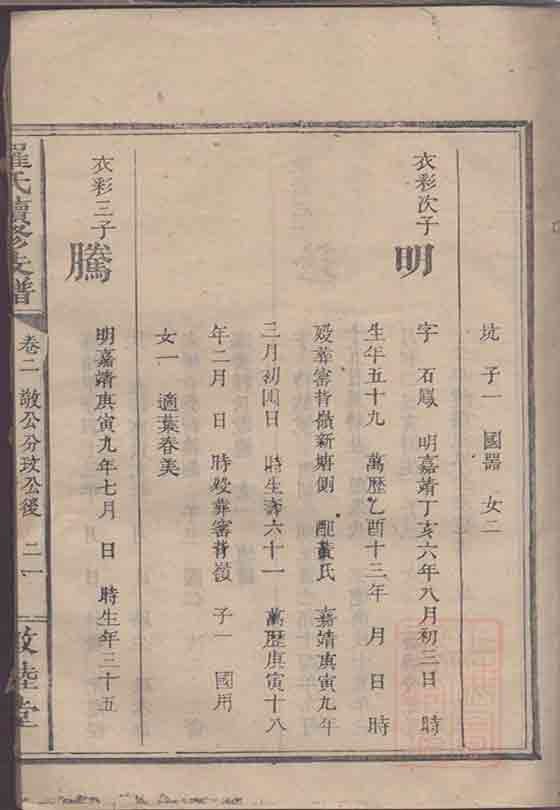 坑　子一　國器　女二
衣彩次子
明
字　石鳳　明嘉靖丁亥六年八月初三日　時
生年五十九　萬歷乙酉十三年　月　日　時
歿葬審背嶺新塘側　配黃氏　嘉靖庚寅九年
三月初四日　時生壽六十一　萬歷庚寅十八
年二月　日　時歿葬審背嶺　子一　國用
女一　適葉春美
衣彩三子
騰
明嘉靖庚寅九年七月　日　時生年三十五
羅氏續修支譜
卷二　敬公分玟公後　二一
敦睦堂